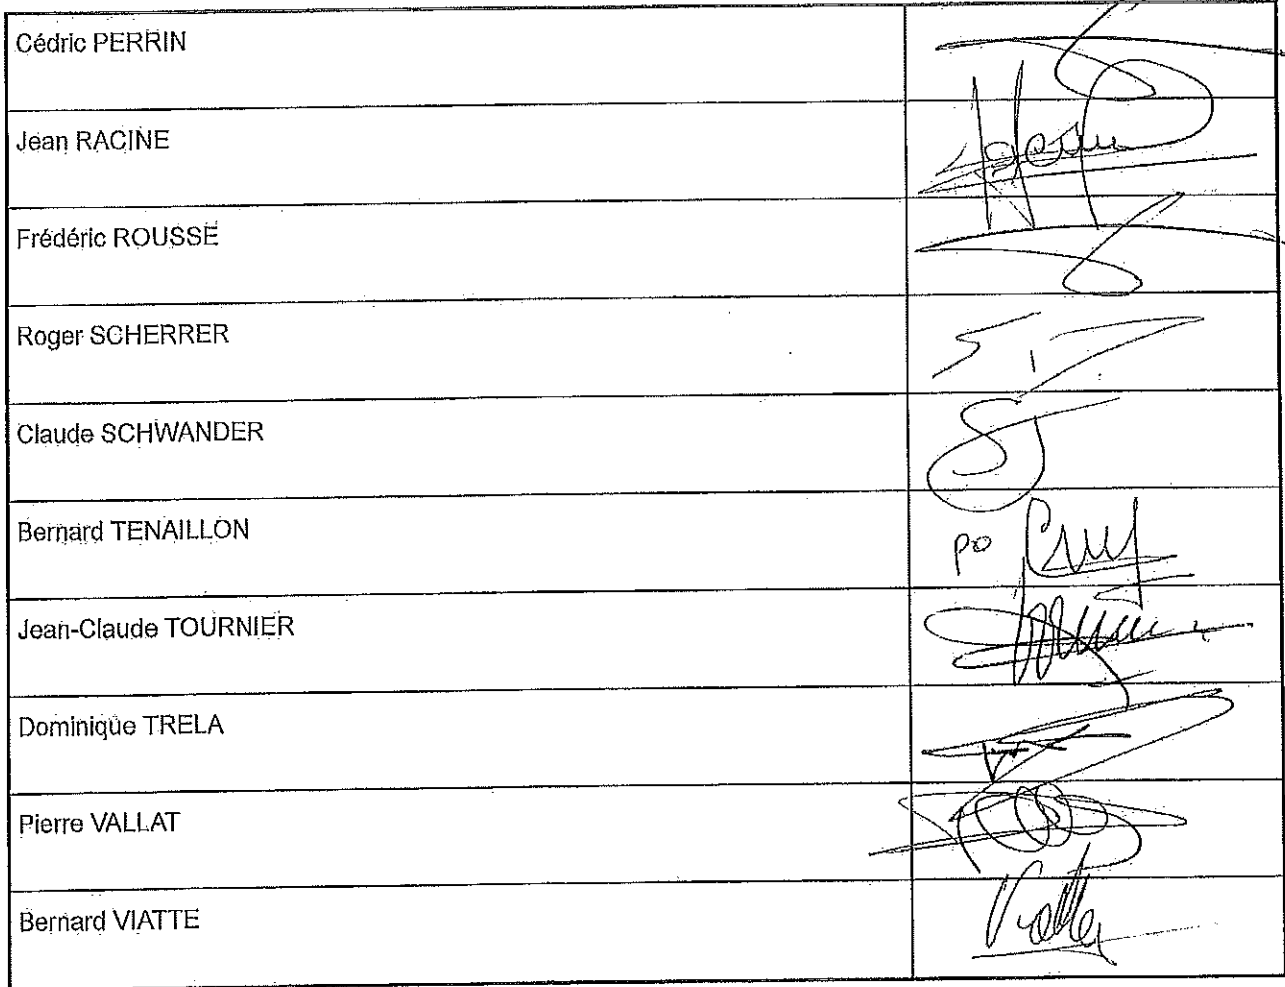 Cédric PERRIN
Jean RACINE
Frédéric ROUSSE
Roger SCHERRER
Claude SCHWANDER
Bernard TENAILLON
po
Jean-Claude TOURNIER
Dominique TRELA
Pierre VALLAT
Bernard VIATTE